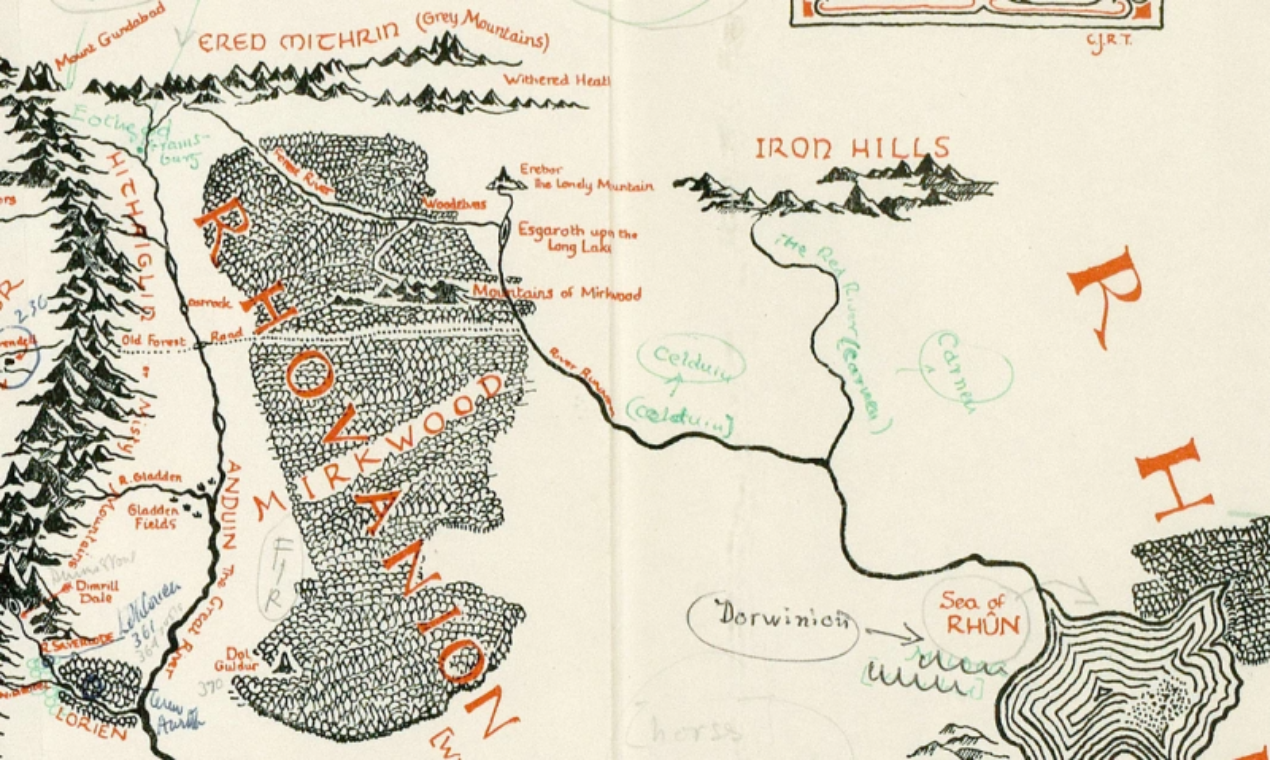 Mount Gundabad
ERED MITHRIN (Grey Mountains)
C.J.R.T.
Withered Heath
Eotheod
Frams-
burg
IRON HILLS
HITHAIGLIN
or Misty Mountains
Forest River
Erebor
The Lonely Mountain
Woodelves
Esgaroth upon the
Long Lake
The Red River (Carnen)
Carnen
RHOVANION
[W
RH
R
230
Mountains of Mirkwood
Old Forest Road
River Running
Celduin
(Celduin)
MIRKWOOD
R. Gladden
Gladden
Fields
ANDUIN The Great River
F
I
R
Dimrill
Dale
361
R. SILVERLODE
Dol
Guldur
390
LORIEN
Dorwinion
Sea of
RHÛN
horss